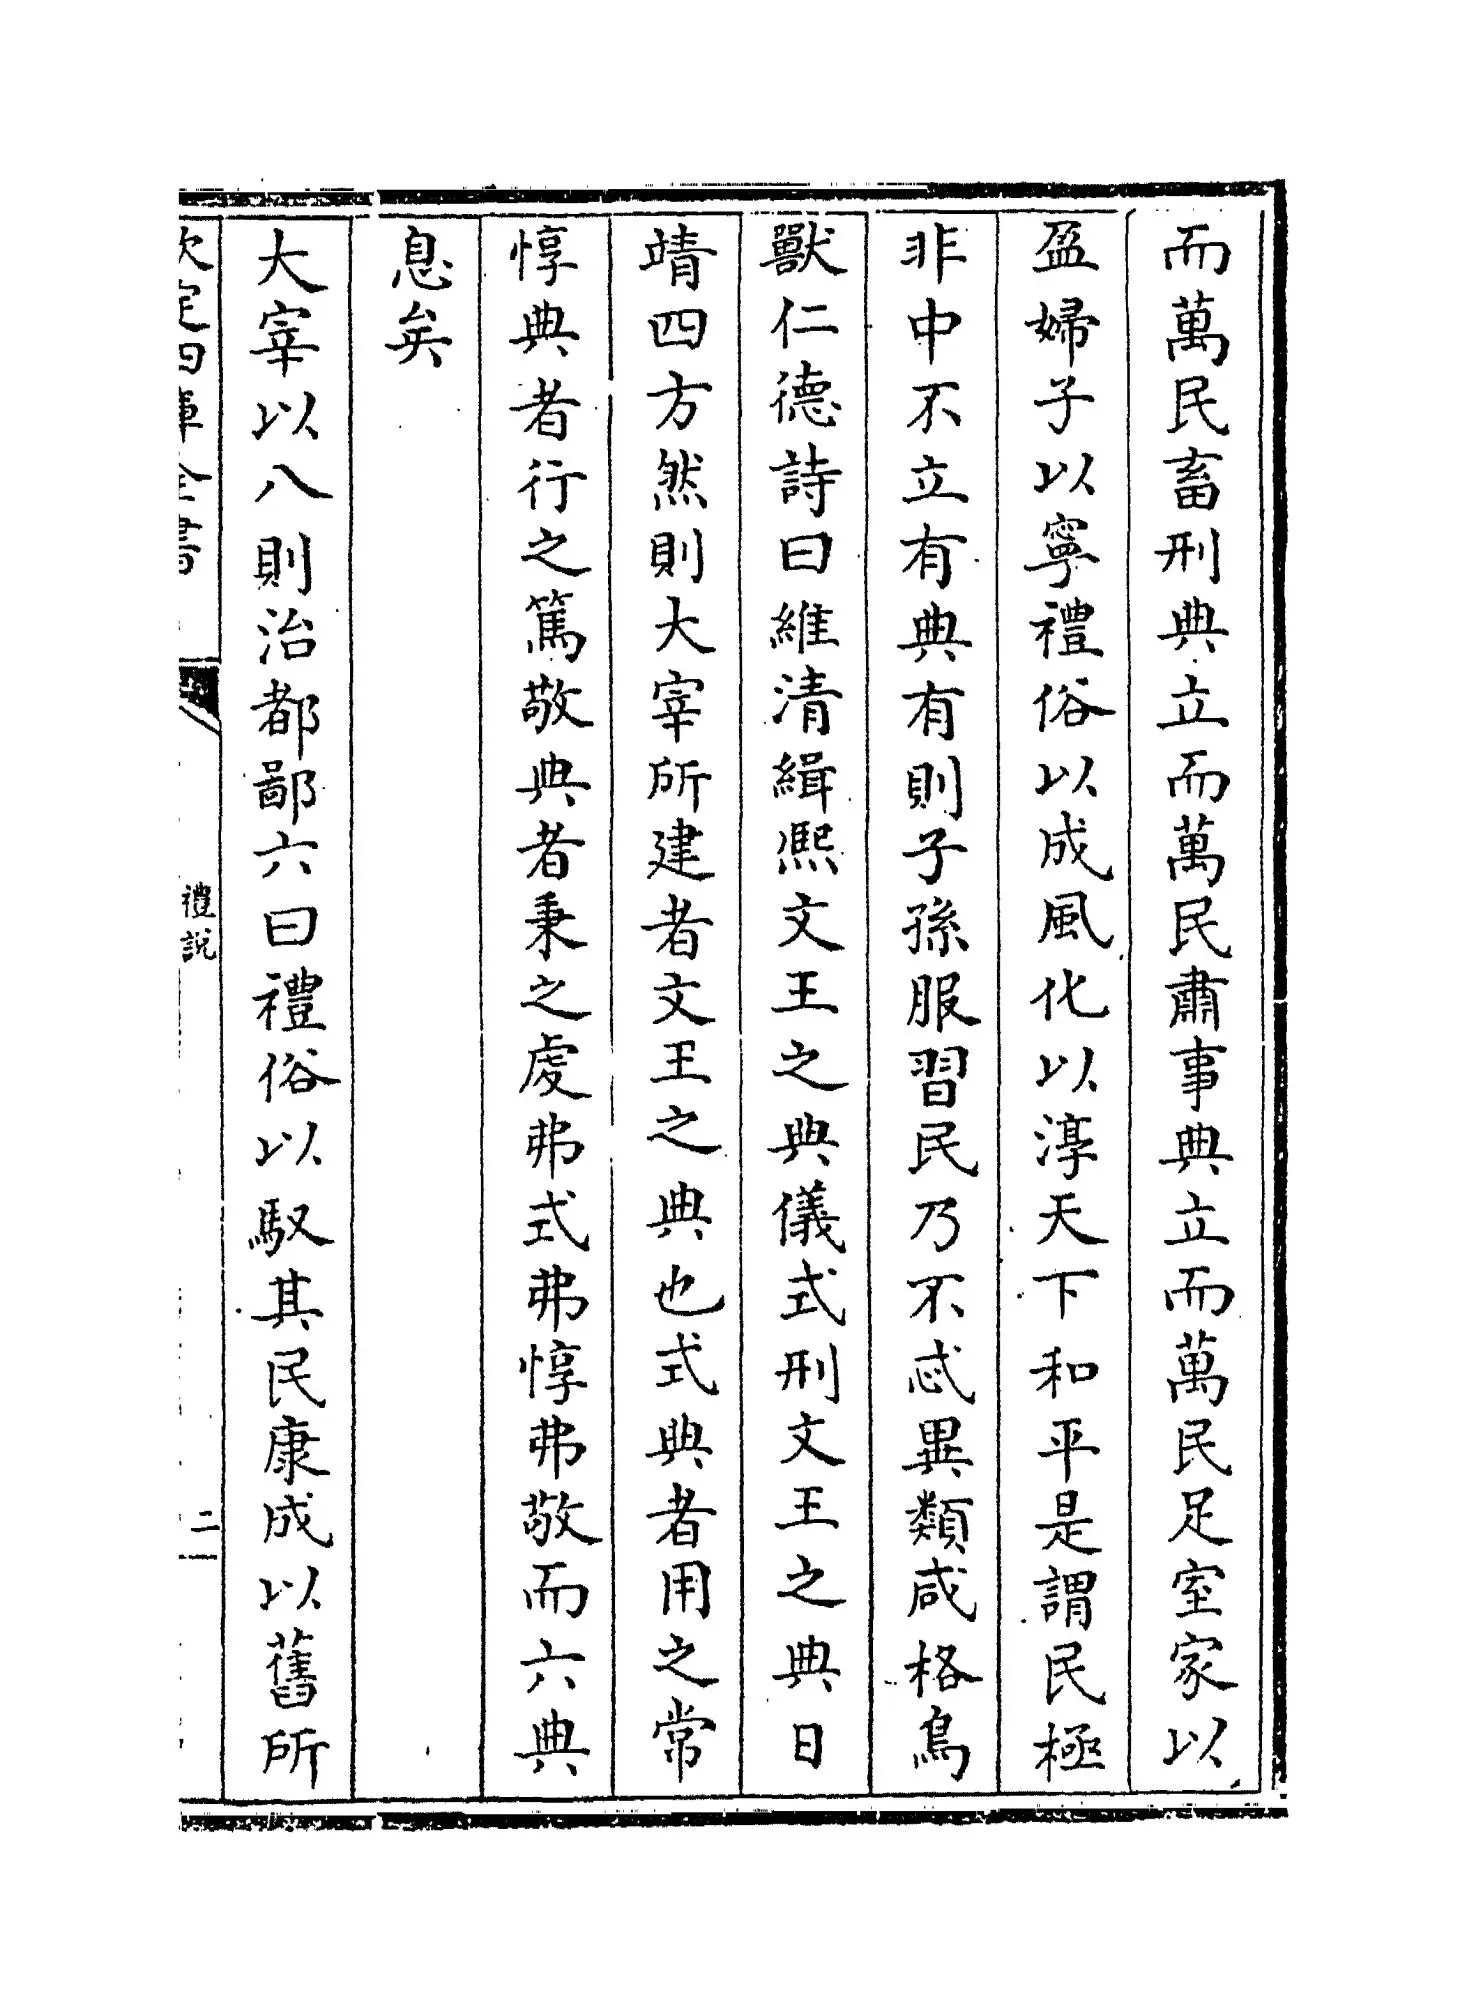 而萬民畜刑典立而萬民肅事典立而萬民足室家以
盈婦子以寧禮俗以成風化以淳天下和平是謂民極
非中不立有典有則子孫服習民乃不忒異類咸格鳥
獸仁德詩曰維清緝熙文王之典儀式刑文王之典日
靖四方然則大宰所建者文王之典也式典者用之常
惇典者行之篤敬典者秉之虔弗式弗惇弗敬而六典
息矣
大宰以八則治都鄙六曰禮俗以馭其民康成以舊所
欽定四庫全書
禮說
二